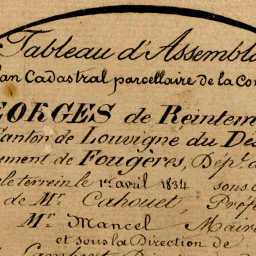 Tableau d'Assembla
an Cadastral parcellaire de la Co
EORGES de Reintem
Canton de Louvigné du Des
ement de Fougères, Dép.t d
le terrein le 1er avril 1834 sous
de Mr. Cahouet, Préf
Mr. Mancel Maire
et sous la Direction de